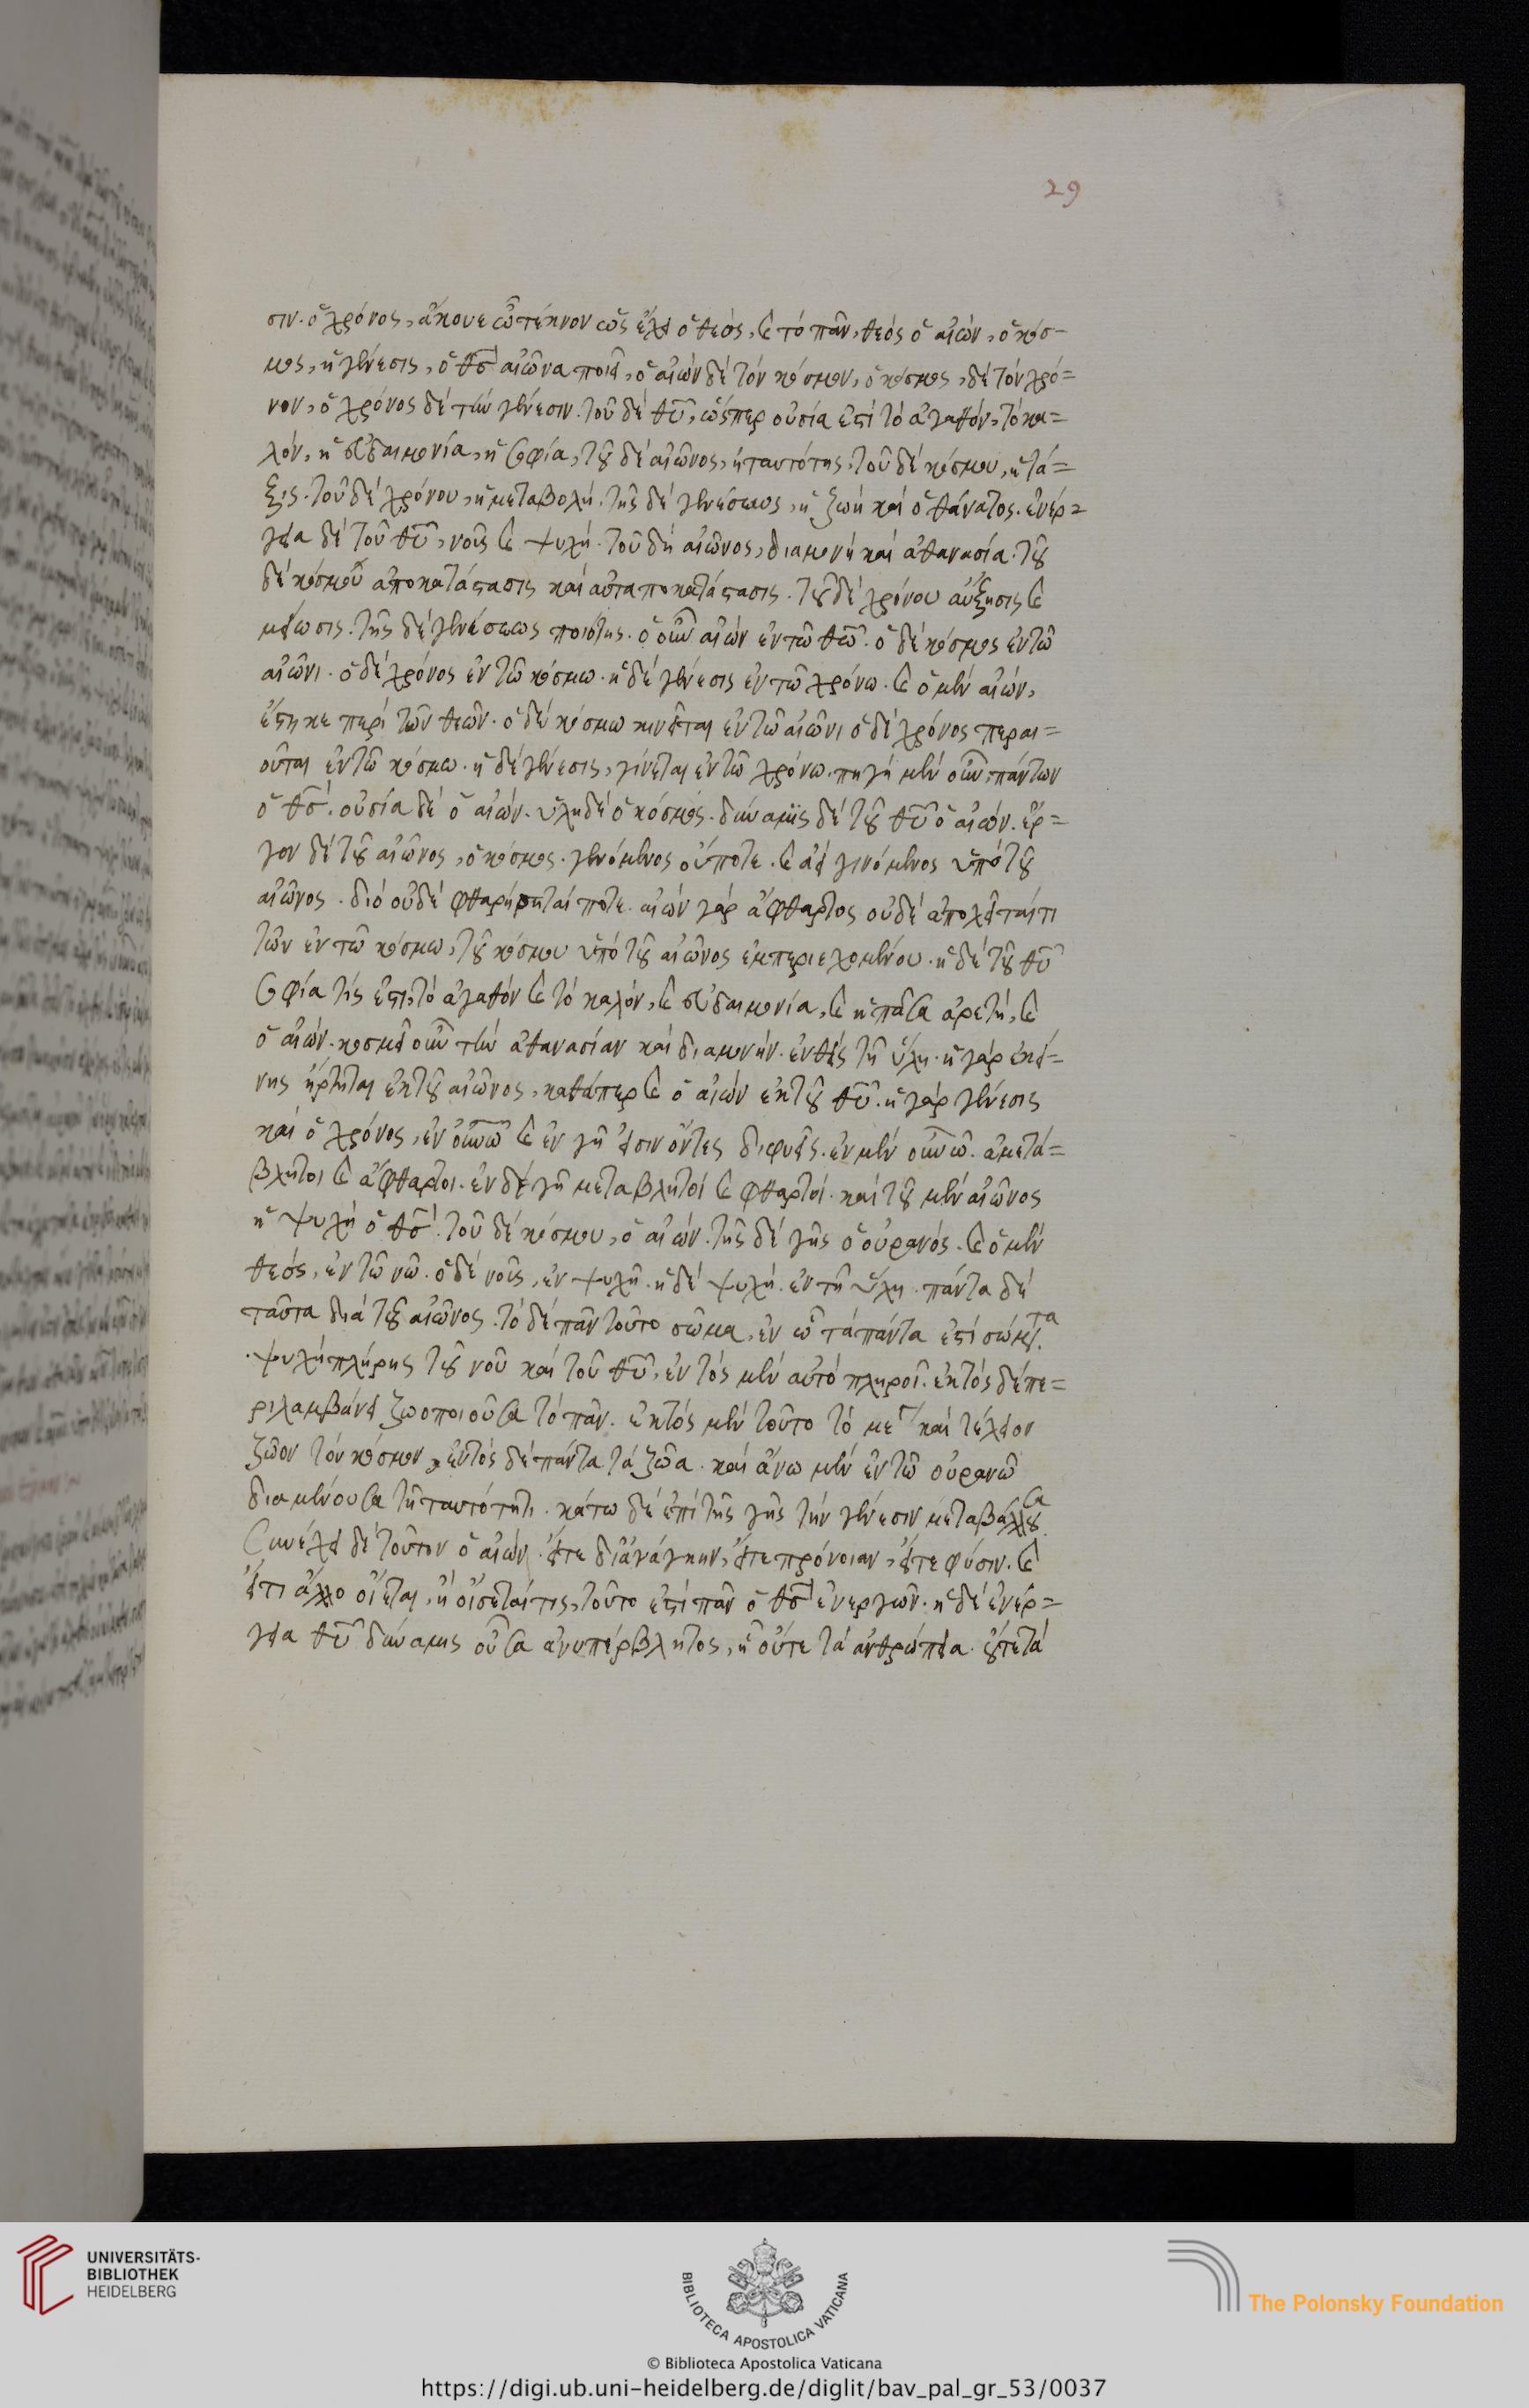 29
σιν. ὁ χρόνος, ἄκουε ὦ τέκνον ὡς ἔχει ὁ θεός, καὶ τὸ πᾶν, θεός ὁ αἰών, ὁ κόσ-
μος, ἡ γένεσις, ὁ θς αἰῶνα ποιεῖ, ὁ αἰών δὲ τόν κόσμον, ὁ κόσμος, δὲ τόν χρό=
νον, ὁ χρόνος δὲ τήν γένεσιν. τοῦ δὲ θῦ, ὥσπερ οὐσία ἐστὶ τὸ ἀγαθόν, τὸ κα=
λόν, ἡ εὐδαιμονία, ἡ σοφία, τοῦ δὲ αἰῶνος, ἡ ταυτότης, τοῦ δὲ κόσμου, ἡ τά=
ξις. τοῦ δὲ χρόνου, ἡ μεταβολή. τῆς δὲ γενέσεως, ἡ ζωή καὶ ὁ θάνατος. ἐνέρ=
γεια δὲ τοῦ θῦ, νοῦς καὶ ψυχή. τοῦ δὴ αἰῶνος, διαμονή καὶ ἀθανασία. τοῦ
δὲ κόσμου ἀποκατάστασις καὶ ἀνταποκατάστασις. τοῦ δὲ χρόνου αὔξησις καὶ
μείωσις. τῆς δὲ γενέσεως ποιότης. ὁ οὖν αἰών ἐν τῶ θῶ. ὁ δὲ κόσμος ἐν τῶ
αἰῶνι. ὁ δὲ χρόνος ἐν τῶ κόσμω. ἡ δὲ γένεσις ἐν τῶ χρόνω. καὶ ὁ μὲν αἰών,
ἕστηκε περὶ τῶν θεῶν. ὁ δὲ κόσμω κινεῖται ἐν τῶ αἰῶνι ὁ δὲ χρόνος περαι=
οῦται ἐν τῶ κόσμω. ἡ δὲ γένεσις, γίνεται ἐν τῶ χρόνω. πηγή μὲν οὖν, πάντων
ὁ θς. οὐσία δὲ ὁ αἰών. ὕλη δὲ ὁ κόσμος. δύναμις δὲ τοῦ θῦ ὁ αἰών. ἔρ=
γον δὲ τοῦ αἰῶνος, ὁ κόσμος. γενόμενος οὔποτε. καὶ ἀεὶ γινόμενος ὑπὸ τοῦ
αἰῶνος. διό οὐδέ φθαρήσεταί ποτε. αἰών γάρ ἄφθαρτος οὐδέ ἀπολεῖταί τι
τῶν ἐν τῶ κόσμω, τοῦ κόσμου ὑπό τοῦ αἰῶνος ἐμπεριεχομένου. ἡ δὲ τοῦ θῦ
σοφία τίς ἐστι, τὸ ἀγαθόν καὶ τὸ καλόν, καὶ εὐδαιμονία, καὶ ἡ πᾶσα ἀρετή, καὶ
ὁ αἰών. κοσμεῖ οὖν τήν ἀθανασίαν καὶ διαμονήν. ἐνθείς τῆ ὕλη. ἡ γάρ ἐκεί=
νης ἤρτηται ἐκ τοῦ αἰῶνος, καθάπερ καὶ ὁ αἰών ἐκ τοῦ θῦ. ἡ γάρ γένεσις
καὶ ὁ χρόνος, ἐν οὐνῶ καὶ ἐν γῆ εἰσιν ὄντες διφυεῖς. ἐν μὲν οὐνῶ. ἀμετά=
βλητοι καὶ ἄφθαρτοι. ἐν δὲ γῆ μεταβλητοί καὶ φθαρτοί. καὶ τοῦ μὲν αἰῶνος
ἡ ψυχή ὁ θς. τοῦ δὲ κόσμου, ὁ αἰών. τῆς δὲ γῆς ὁ οὐρανός. καὶ ὁ μὲν
θεός, ἐν τῶ νῶ. ὁ δὲ νοῦς, ἐν ψυχῆ. ἡ δὲ ψυχή. ἐν τῆ ὕλη. πάντα δὲ
ταῦτα διὰ τοῦ αἰῶνος. τὸ δὲ πᾶν τοῦτο σῶμα, ἐν ὧ τὰ πάντα ἐστὶ σώματα.
ψυχή πλήρης τοῦ νοῦ καὶ τοῦ θῦ, ἐντός μὲν αὐτό πληροῖ. ἐκτός δὲ πε=
ριλαμβάνει ζωοποιοῦσα τὸ πᾶν. ἐκτός μὲν τοῦτο τὸ μέγα καὶ τέλειον
ζῶον τόν κόσμον, ἐντός δὲ πάντα τὰ ζῶα. καὶ ἄνω μὲν ἐν τῶ οὐρανῶ
διαμένουσα τῆ ταυτότητι. κάτω δὲ ἐπί τῆς γῆς τήν γένεσιν μεταβάλλουσα
συνέχει δὲ τοῦτον ὁ αἰών. εἴτε δι ἀνάγκην, εἴτε πρόνοιαν, εἴτε φύσιν. καὶ
εἴ τι ἄλλο οἴεται, ἢ οἴσεταί τις, τοῦτο ἐστὶ πᾶν ὁ θς ἐνεργῶν. ἡ δὲ ἐνέρ=
γεια θῦ δύναμις οὖσα ἀνυπέρβλητος, ἧ οὔτε τὰ ἀνθρώπεια. οὔτε τὰ
UNIVERSITÄTS-
BIBLIOTHEK
HEIDELBERG
BIBLIOTECA APOSTOLICA VATICANA
The Polonsky Foundation
© Biblioteca Apostolica Vaticana
https://digi.ub.uni-heidelberg.de/diglit/bav_pal_gr_53/0037